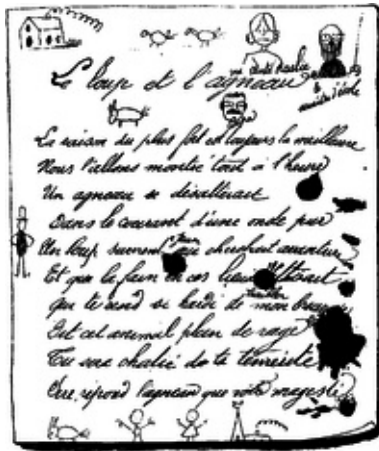 Le loup et l'agneau
La raison du plus fort est toujours la meilleure
Nous l'allons montrer tout à l'heure
Un agneau se désaltérait
Dans le courant d'une onde pure
Un loup survient à jeun qui cherchait aventure
Et que la faim en ces lieux attirait
Qui te rend si hardi de mon
Dit cet animal plein de rage
Tu sera chatié de ta témérité
Sire, répond l'agneau que votre magesté